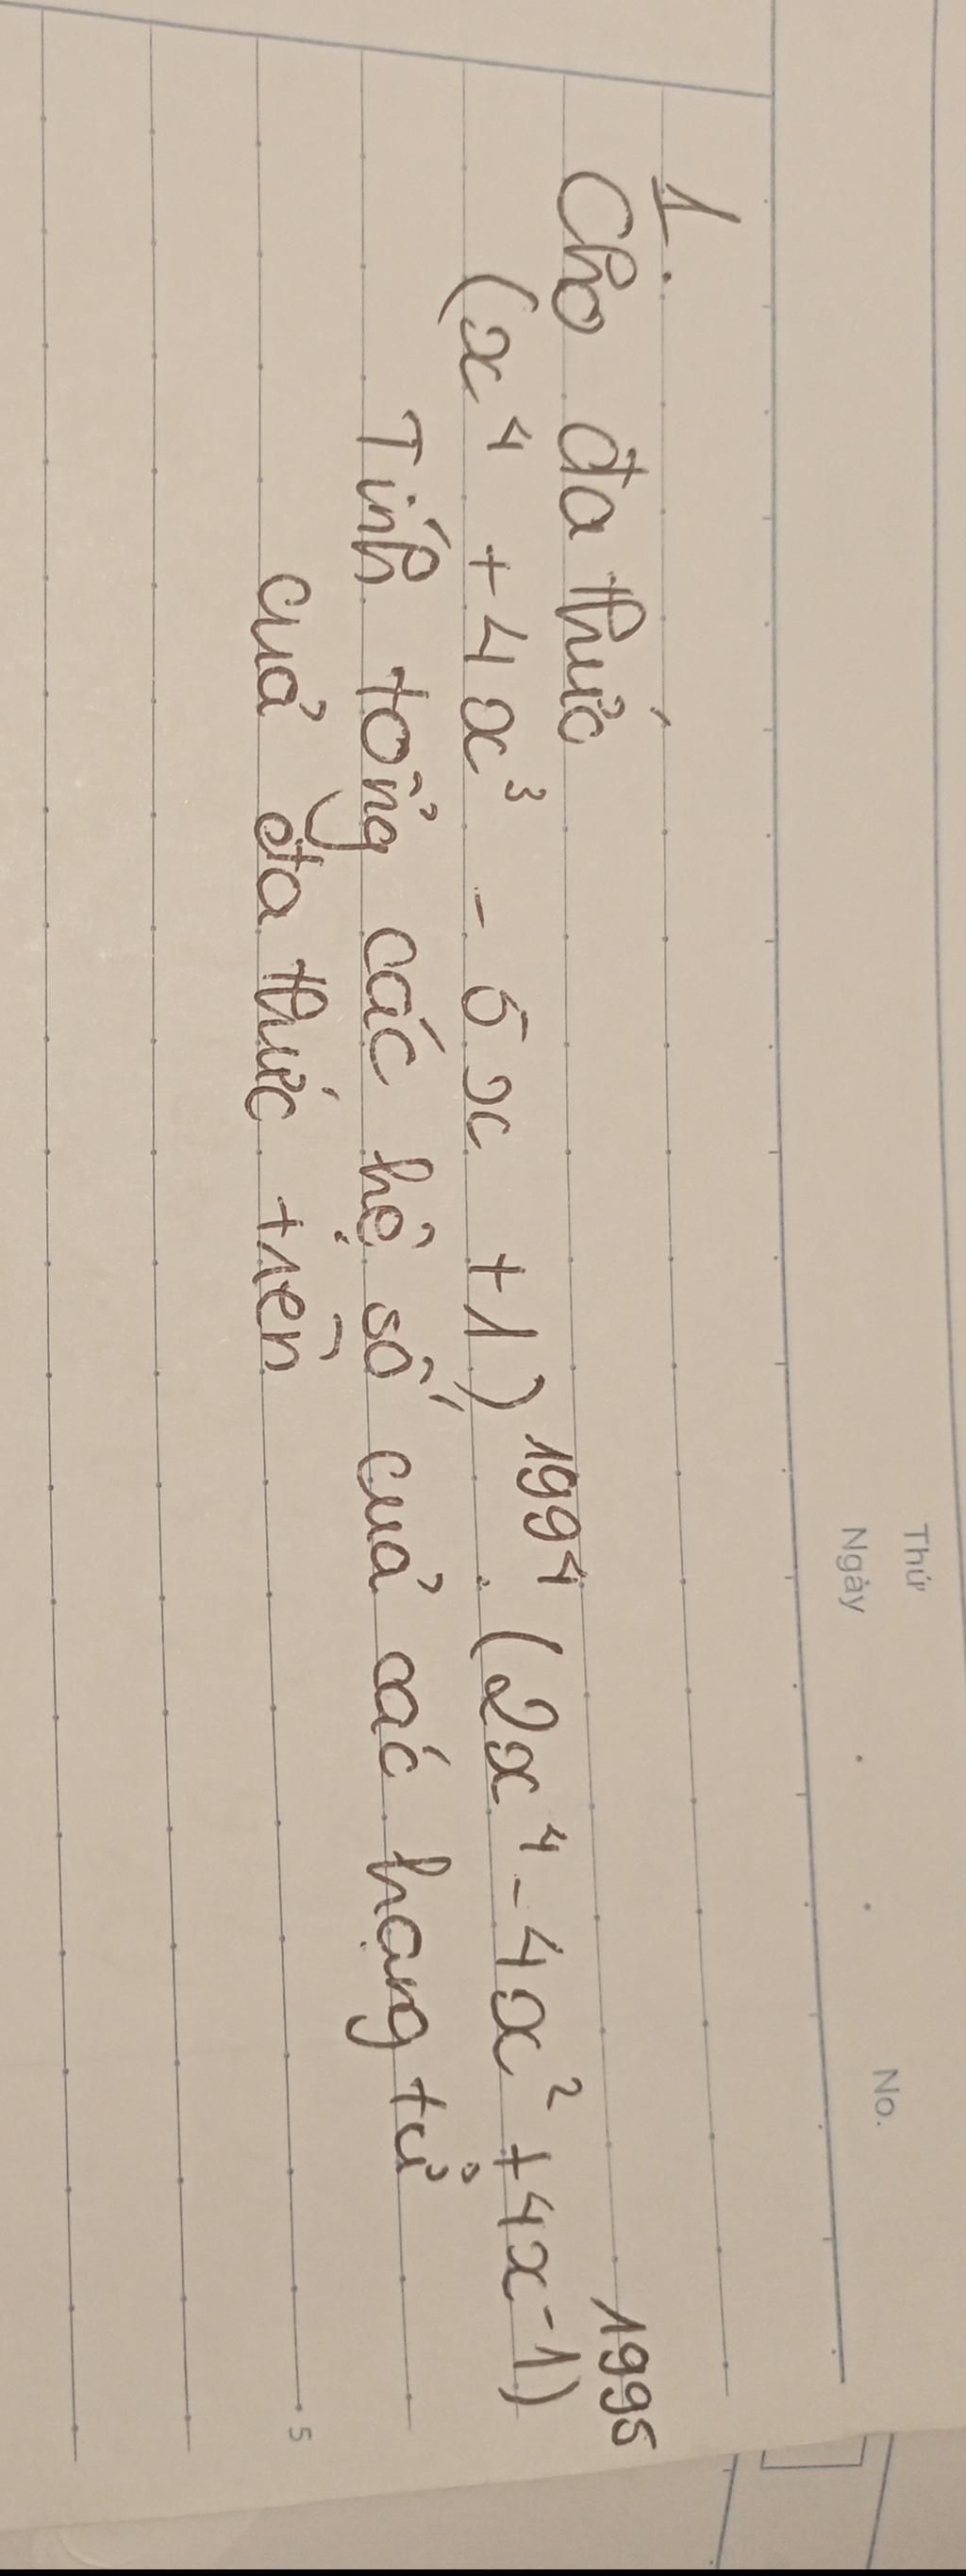 Thứ
Ngày . . No.
1.
Cho đa thức
(x⁴ + 4x³ - 5x + 1)¹⁹⁹⁴ . (2x⁴ - 4x² + 4x - 1)¹⁹⁹⁵
Tính tổng các hệ số của các hạng tử
của đa thức trên
5